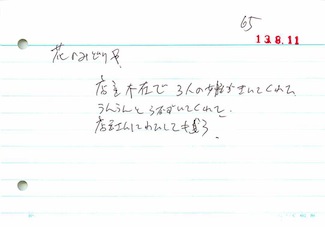 65
13.8.11
花のみどりや
店主不在で3人の女性がきいてくれて
うんうんとうなずいてくれて、
店主さんに